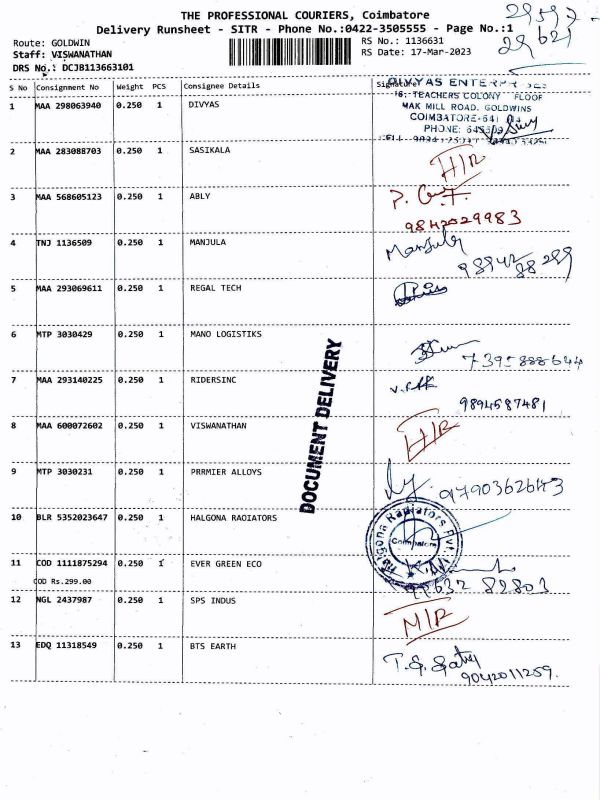 THE PROFESSIONAL COURIERS, Coimbatore
Delivery Runsheet - SITR - Phone No.:0422-3505555 - Page No.:1
29597
29621
Route: GOLDWIN
Staff: VISWANATHAN
DRS No.: DCJB113663101
RS No.: 1136631
RS Date: 17-Mar-2023
S No Consignment No Weight PCS Consignee Details Signature
1 MAA 298063940 0.250 1 DIVYAS
DIVYAS ENTERPR
TEACHERS COLONY FLOOR
MAK MILL ROAD. GOLDWINS
COIMBATORE-641
PHONE:
2 MAA 283088703 0.250 1 SASIKALA
3 MAA 568605123 0.250 1 ABLY
9842029983
4 TNJ 1136509 0.250 1 MANJULA
Manjula
98942 88289
5 MAA 293069611 0.250 1 REGAL TECH
6 MTP 3030429 0.250 1 MANO LOGISTIKS
7395888644
7 MAA 293140225 0.250 1 RIDERSINC
9894587481
8 MAA 600072602 0.250 1 VISWANATHAN
9 MTP 3030231 0.250 1 PRRMIER ALLOYS
9790362643
10 BLR 5352023647 0.250 1 HALGONA RAOIATORS
Halgona Radiators Pvt.
Coimbatore
11 COD 1111875294 0.250 1 EVER GREEN ECO
COD Rs.299.00
82803
12 NGL 2437987 0.250 1 SPS INDUS
13 EDQ 11318549 0.250 1 BTS EARTH
9042011259.
DOCUMENT DELIVERY